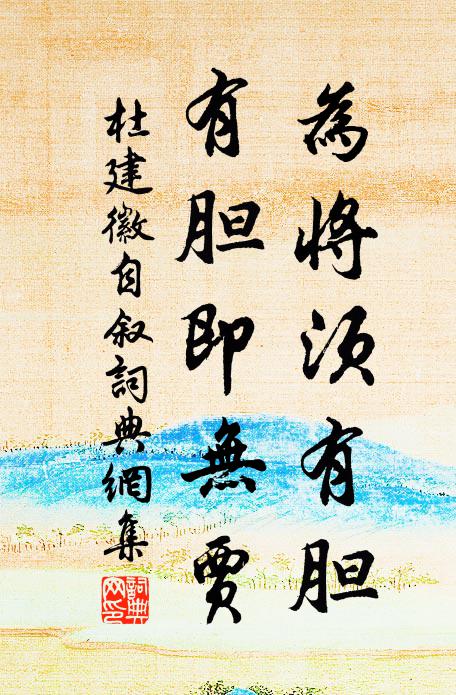 為將須有胆
有胆即無賈
杜建徽自叙詞典網集
詞典网印